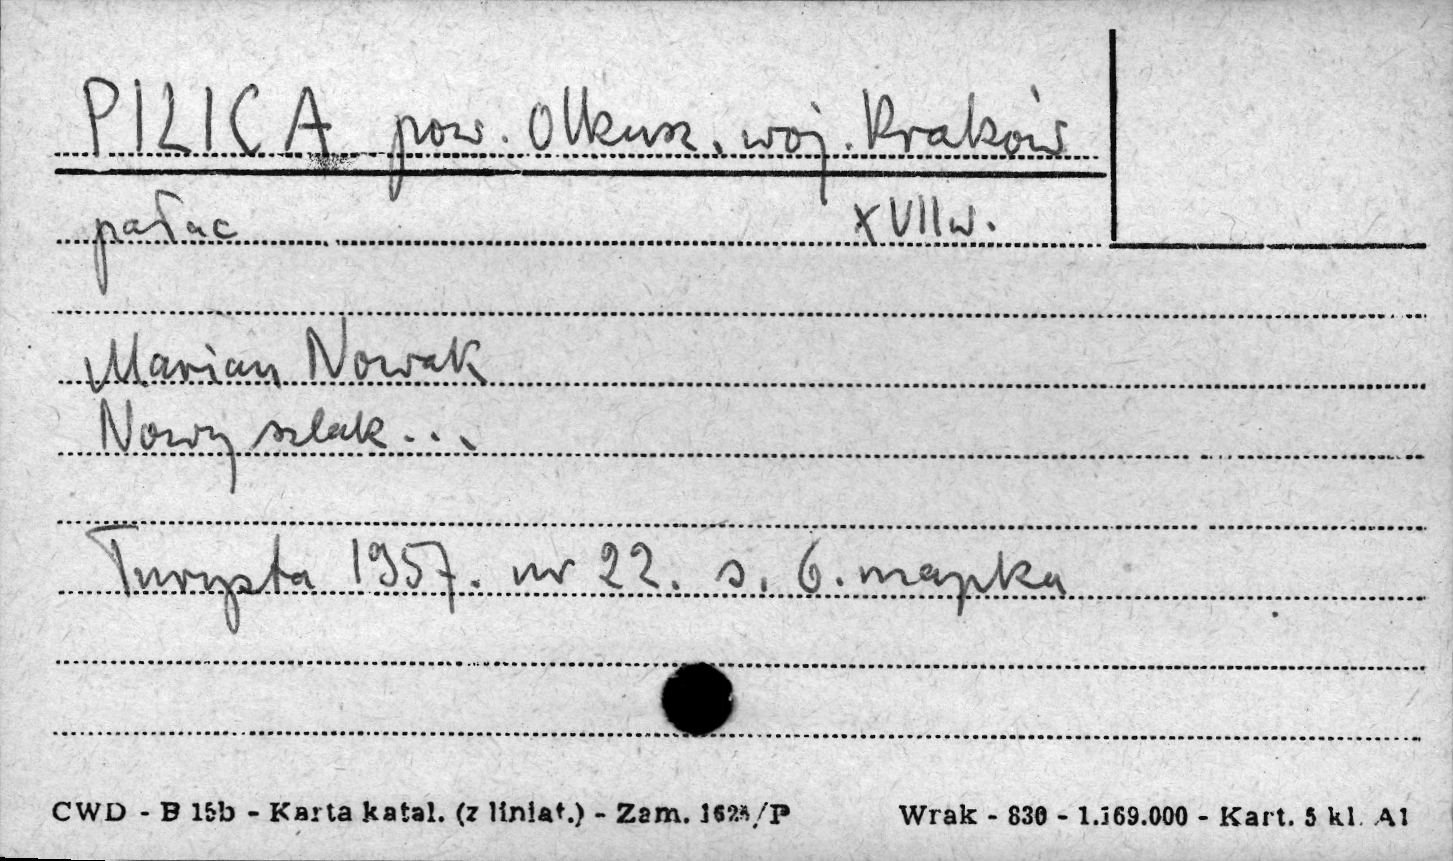 PILICA pow. Olkusz. woj. Kraków
pałac XVII w.
Marian Nowak
Nowy szlak...
Turysta 1957. nr 22. s. 6. mapka
CWD - B 15b - Karta katal. (z liniat.) - Zam. /P Wrak - 830 - 1.169.000 - Kart. 5 kl. A1